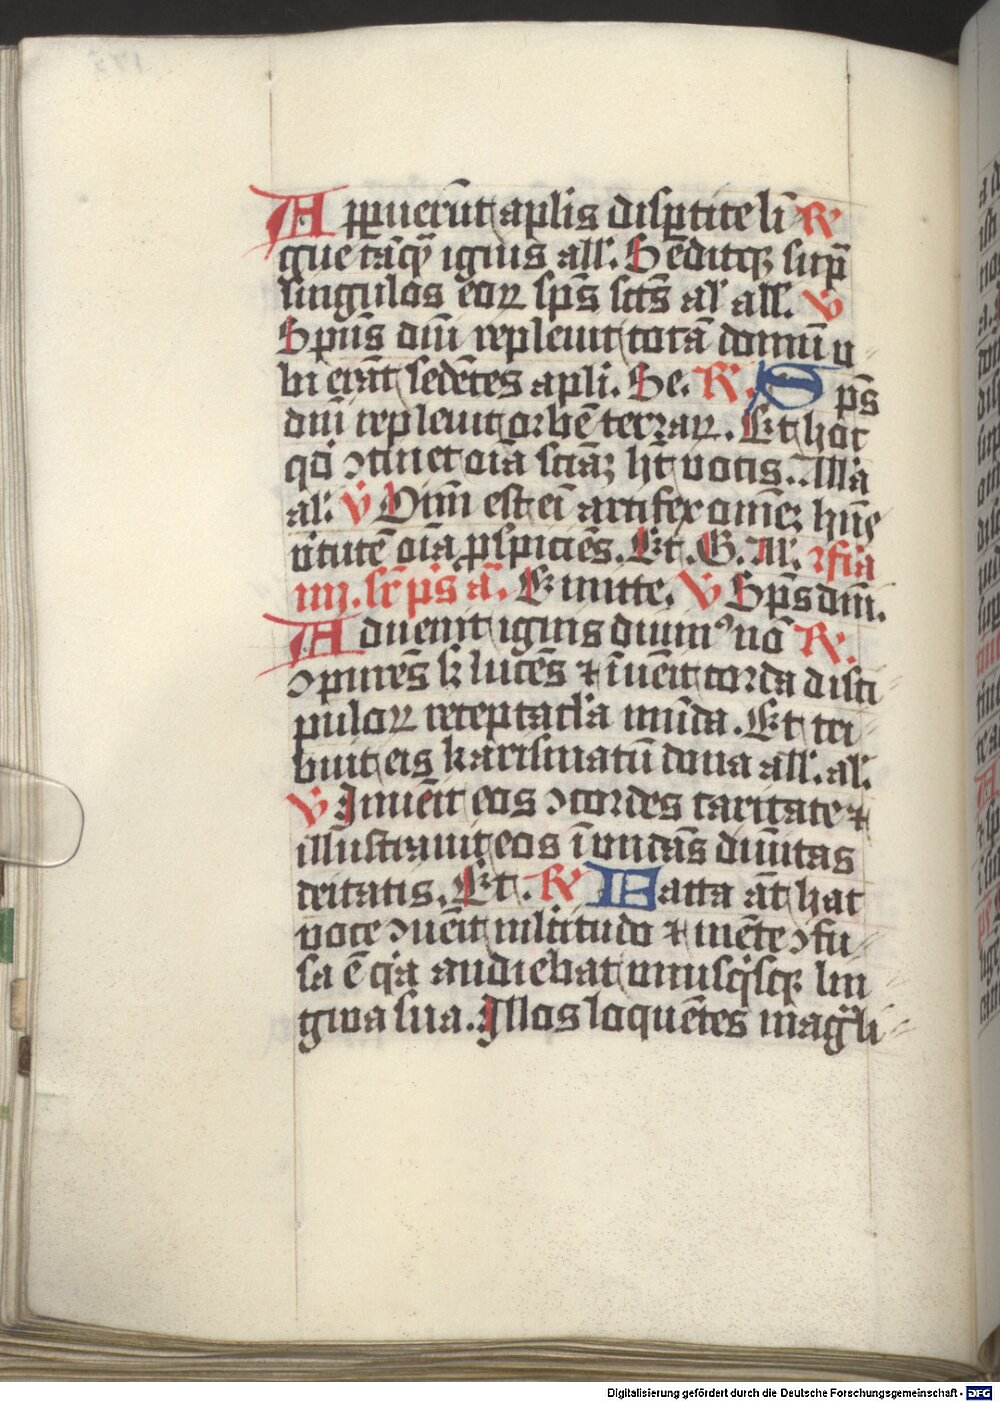 Apparuerūt aplis dispertite li R
gue tāq̄ ignis all'. Sēditq; sup̄
singulos eoꝝ sp̄s scūs al' all'. V
Spūs dn̄i repleuit totā domū v
bi erāt sedētes apli. Se. R. Sp̄s
dn̄i repleuit orbē terraꝝ. Et hoc
qd̄ ↄtinet oīa sciāꝫ hꝫ vocis. Alla
al'. V Oīm est eī artifex omēꝫ hn̄s
v̄tutē oīa ꝑspiciēs. Et. G. All'. ꝛ fia
iiij. sr̄ p̄s ā. Emitte. V Sp̄s dn̄i.
Aduenit ignis diuinꝰ nō R.
ↄburēs sꝫ lucēs ⁊ īuēit corda disci
puloꝝ receptac̄la mūda. Et tri
buit eis karismatū dona all'. al'.
V Inuēit eos ↄcordes caritate ⁊
illustrauit eos īundās diuītas
deitatis. Et. R Facta āt hac
voce ↄuēit mltitudo ⁊ mēte ↄfu
sa ē qͥa audiebat vnusqͥsq; lin
gwa sua. Illos loquētes magͣli
Digitalisierung gefördert durch die Deutsche Forschungsgemeinschaft - DFG